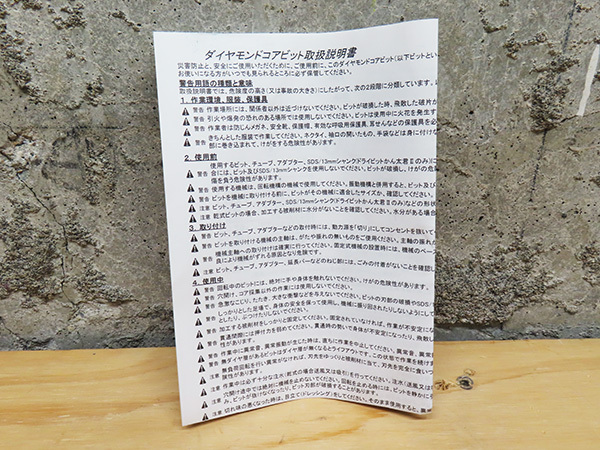 ダイヤモンドコアビット取扱説明書
災害防止と、安全にご使用いただくために、ご使用前に、このダイヤモンドコアビット(以下ビットとい
お使いになる方がいつでも見られるところに必ず保管してください。
警告用語の種類と意味
取扱説明書では、危険度の高さ(又は事故の大きさ)にしたがって、次の2段階に分類しています。
1. 作業環境、服装、保護具
警告 作業場所には、関係者以外は近づけないでください。ビットが破損した時、飛散した破片が
警告 引火や爆発の恐れのある場所では使用しないでください。ビット使用中に火花を発生す
警告 作業者は防じんメガネ、安全靴、保護帽、有効な呼吸用保護具、耳せんなどの保護具を必
警告 きちんとした服装で作業してください。ネクタイ、袖口の開いたもの、手袋などは身に付けな
部に巻き込まれて、けがをする危険性があります。
2. 使用前
使用するビット、チューブ、アダプター、SDS/13mmシャンクドライビットかん太君Ⅱのみ)に
警告 合には、ビット及びSDS/13mmシャンクを使用しないでください。ビットが破損し、けがの危険
傷を負う危険性があります。
警告 使用する機械は、回転機構の機械で使用してください。振動機構と併用すると、ビット及び
警告 ビットを機械に取り付ける前に、ビットがその機械に適合したサイズか、確認してください。
注意 ビット、チューブ、アダプター、SDS/13mmシャンク(ドライビットかん太君Ⅱのみ)などの形状
注意 乾式ビットの場合、加工する被削材に水分がないことを確認してください。水分がある場合
3. 取り付け
警告 ビット、チューブ、アダプターなどの取付時には、動力源を「切り」にしてコンセントを抜いて
警告 ビットを取り付ける機械の主軸は、がたや振れの無いものをご使用ください。主軸の振れか
警告 機械主軸への取り付けは確実に行ってください。固定式機械の設置時には、機械のベース
良により機械がずれる原因となり危険です。
注意 ビット、チューブ、アダプター、延長バーなどのねじ部には、ごみの付着がないことを確認し
4. 使用中
警告 回転中のビットには、絶対に手や身体を触れないでください。けがの危険性があります。
警告 穴開け、コア採集以外の作業には使用しないでください。
警告 急激なこじり、たたき、大きな衝撃などを与えないでください。ビットの刃部の破損やSDS/
しっかりとした足場で、身体の安全を保って使用し、機械に振り回されたりしないようにして
としたり、ぶつけたりしないでください。
警告 加工する被削材をしっかりと固定してください。固定されていなければ、作業が不安定にな
貫通間際には押付力を弱めてください。貫通時の勢いで身体が不安定になったり、危険
警告 作業中に異常音、異常振動が生じた時は、直ちに作業を中止してください。異常音、異常
警告 無ダイヤ層があるビットはダイヤ層が無くなるとライフアウトです。この状態で作業を続ける
無負荷回転を行い異常がなければ、刃先をゆっくりと被削材に当て、刃先を完全に食いつ
険性があります。
注意 作業中は必ず十分な注水(乾式の場合送風又は吸引)を行ってください。注水(送風又は吸
穴開け途中では絶対に機械を止めないでください。回転を止める時には、ビットを静かに引
み、ビットが抜けなくなったり、ビット刃部が破損することがあります。
注意 切れ味の悪くなった時は、目立て(ドレッシング)をしてください。そのまま使用すると、無